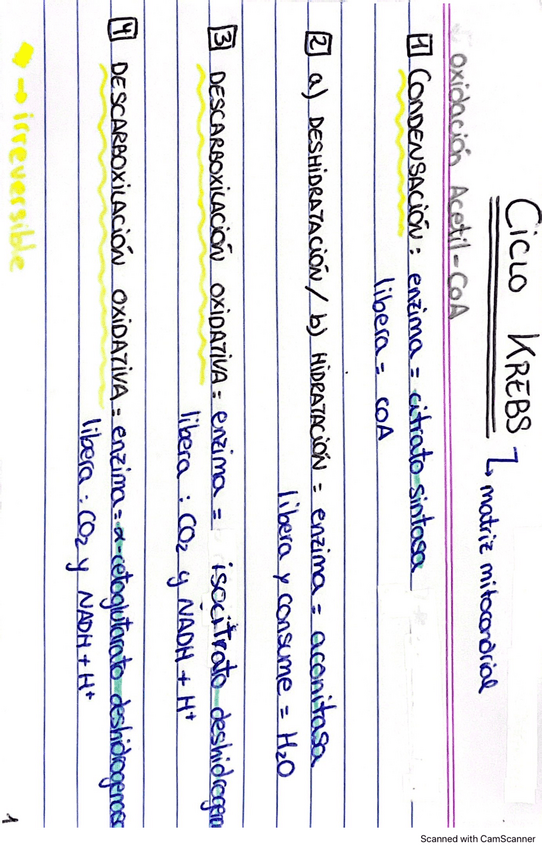 CICLO KREBS ↳ matriz mitocondrial
oxidación Acetil-CoA
1 CONDENSACIÓN: enzima = citrato sintasa
libera = COA
2 a) DESHIDRATACIÓN / b) HIDRATACIÓN = enzima = aconitasa
libera y consume = H₂O
3 DESCARBOXILACIÓN OXIDATIVA = enzima = isocitrato deshidrogena
libera : CO₂ y NADH + H⁺
4 DESCARBOXILACIÓN OXIDATIVA = enzima = α-cetoglutarato deshidrogenasa
libera : CO₂ y NADH + H⁺
→ irreversible
1
Scanned with CamScanner